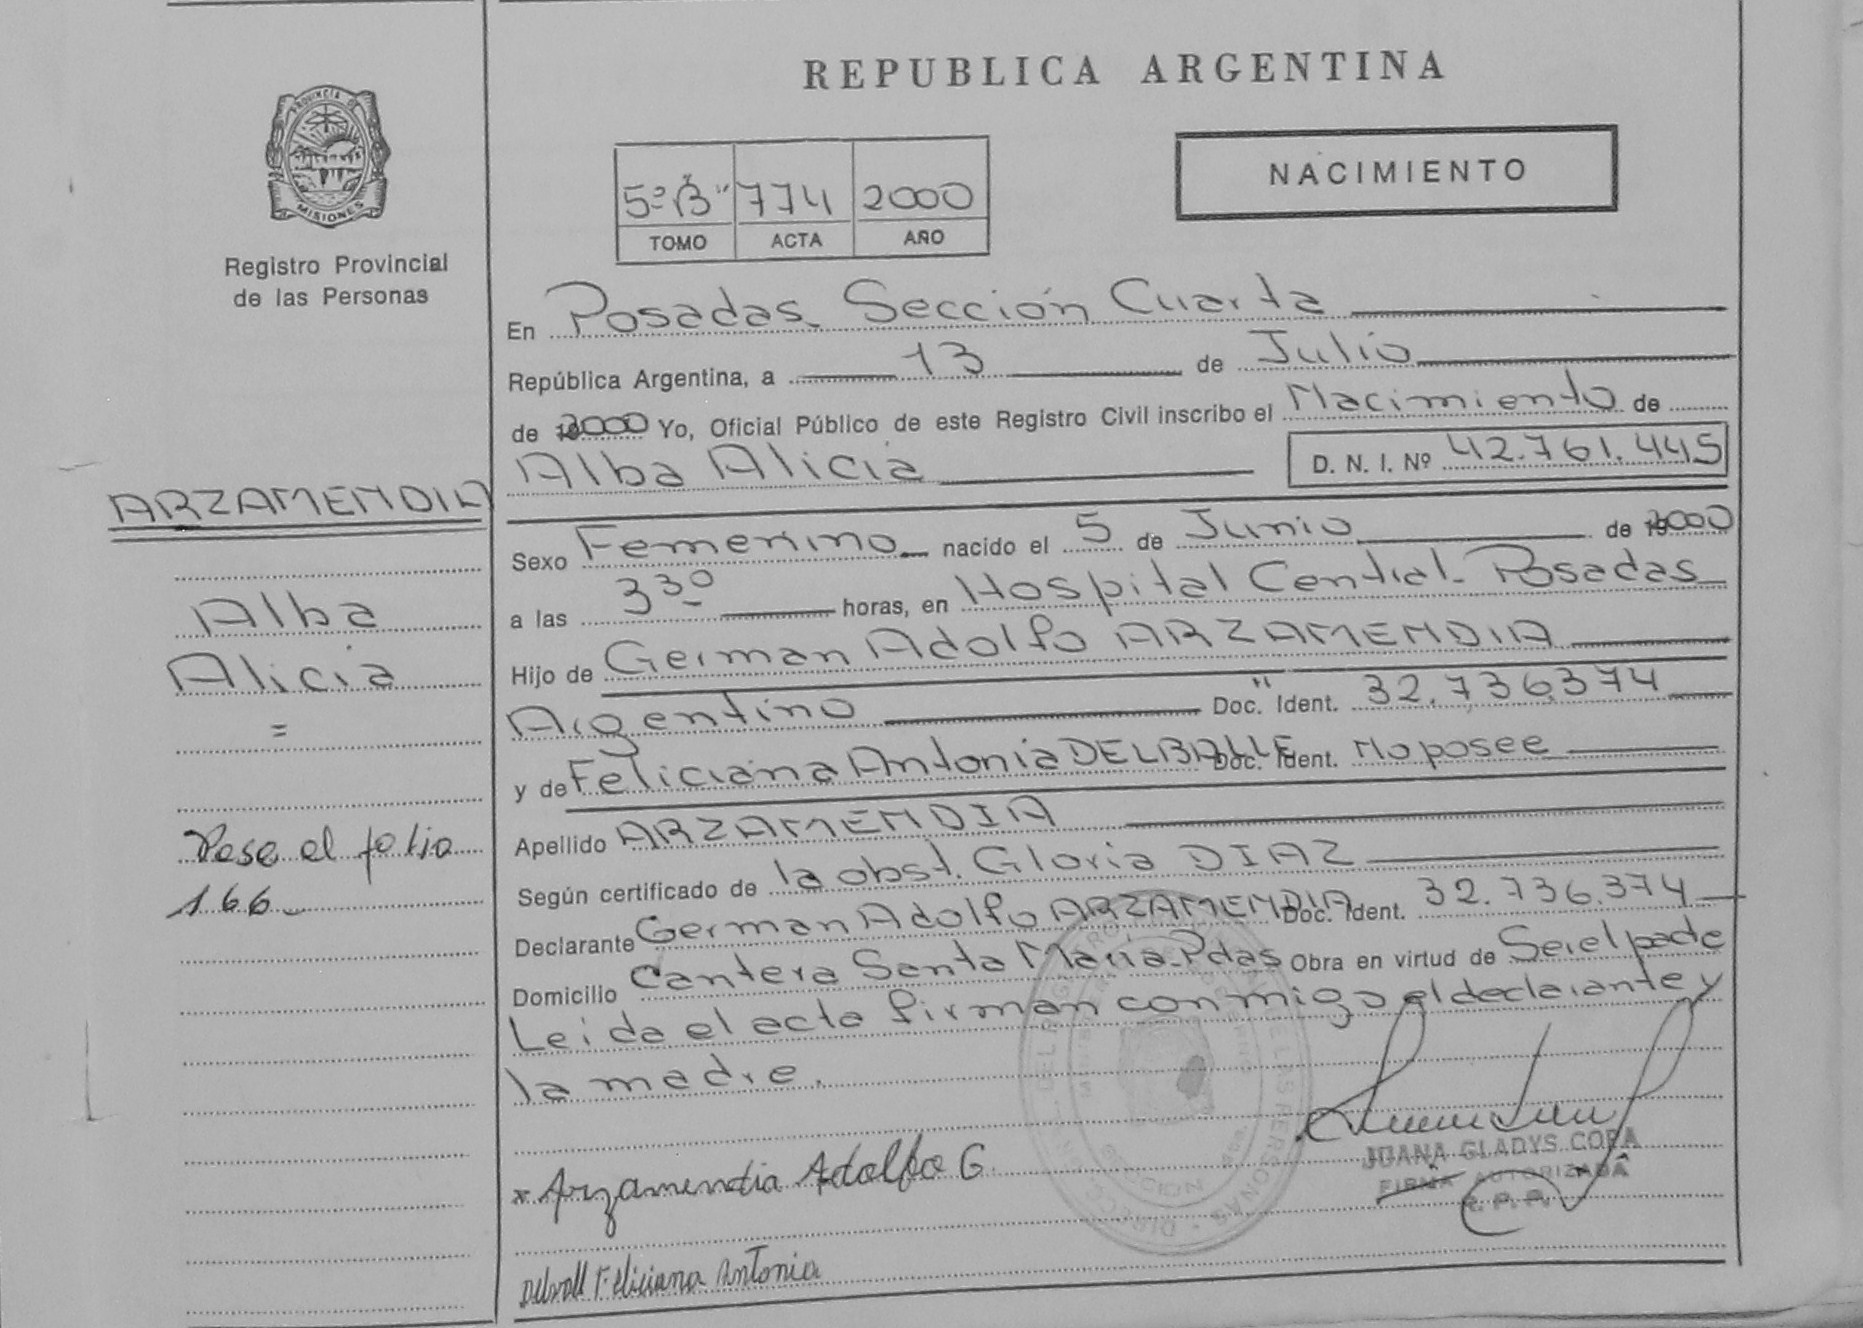 REPUBLICA ARGENTINA
PROVINCIA DE MISIONES
Registro Provincial
de las Personas
NACIMIENTO
5º "B" 774 2000
TOMO ACTA AÑO
En Posadas Sección Cuarta
República Argentina, a 13 de Julio
de 2000 Yo, Oficial Público de este Registro Civil inscribo el Nacimiento de
Alba Alicia D. N. I. Nº 42.761.445
ARZAMENDIA
Alba
Alicia
=
Vese el folio
166
Sexo Femenino nacido el 5 de Junio de 2000
a las 3 30 horas, en Hospital Central - Posadas
Hijo de German Adolfo ARZAMENDIA
Argentino Doc. Ident. 32.736.374
y de Feliciana Antonia DELBALLE Doc. Ident. No posee
Apellido ARZAMENDIA
Según certificado de la obst. Gloria DIAZ
Declarante German Adolfo ARZAMENDIA Doc. Ident. 32.736.374
Domicilio Cantera Santa Maria - Pdas Obra en virtud de Ser el padre
Leida el acta firman conmigo el declarante y
la madre.
x Arzamendia Adolfo G.
JUANA GLADYS COPA
FIRMA AUTORIZADA
R. P. P.
Feliciana Antonia